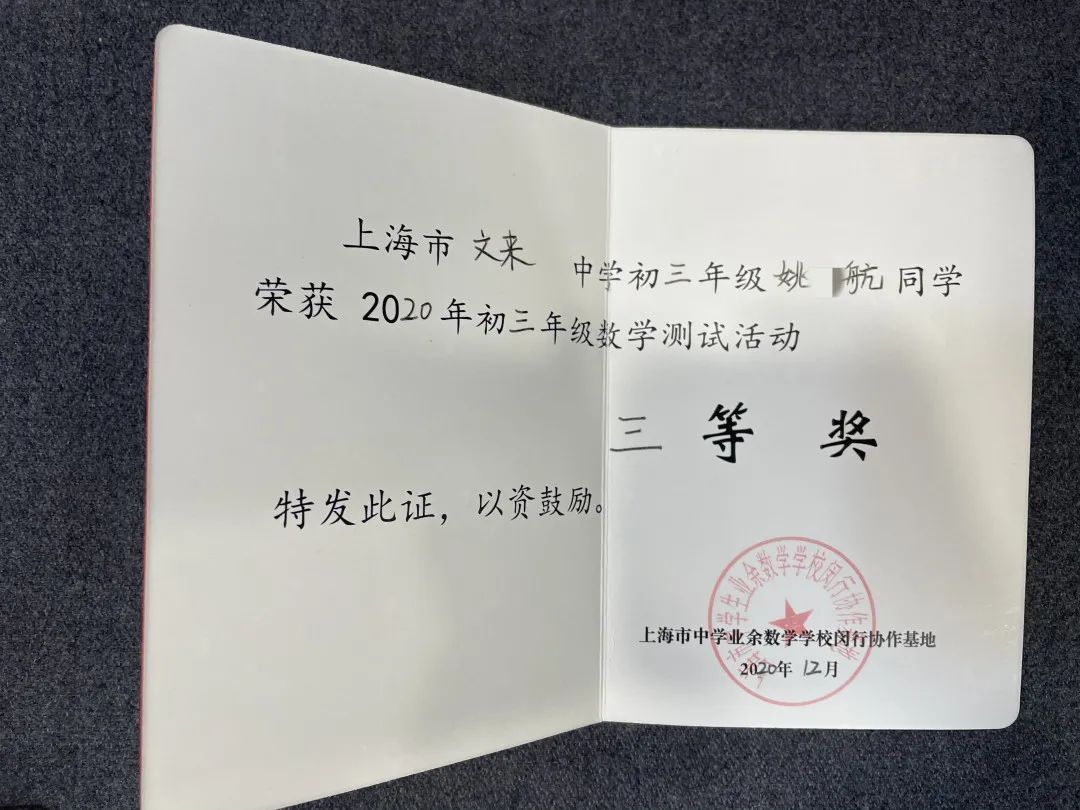 上海市 文来 中学初三年级 姚 航 同学
荣获 2020年初三年级数学测试活动
三 等 奖
特发此证，以资鼓励。
学生业余数学学校闵行协作
上海市中学业余数学学校闵行协作基地
2020年 12月